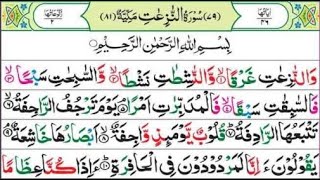 (٧٩) سُوْرَةُ النّٰزِعٰتِ مَكِّيَّةٌ (٨١)
بِسْمِ اللّٰهِ الرَّحْمٰنِ الرَّحِيْمِ
وَالنّٰزِعٰتِ غَرْقًا ۙ﴿۱﴾ وَّالنّٰشِطٰتِ نَشْطًا ۙ﴿۲﴾ وَّالسّٰبِحٰتِ سَبْحًا ۙ﴿۳﴾
فَالسّٰبِقٰتِ سَبْقًا ۙ﴿۴﴾ فَالْمُدَبِّرٰتِ اَمْرًا ۘ﴿۵﴾ يَوْمَ تَرْجُفُ الرَّاجِفَةُ ۙ﴿۶﴾
تَتْبَعُهَا الرَّادِفَةُ ؕ﴿۷﴾ قُلُوْبٌ يَّوْمَىِٕذٍ وَّاجِفَةٌ ۙ﴿۸﴾ اَبْصَارُهَا خَاشِعَةٌ ۘ﴿۹﴾
يَقُوْلُوْنَ ءَاِنَّا لَمَرْدُوْدُوْنَ فِى الْحَافِرَةِ ؕ﴿۱۰﴾ ءَاِذَا كُنَّا عِظَامًا